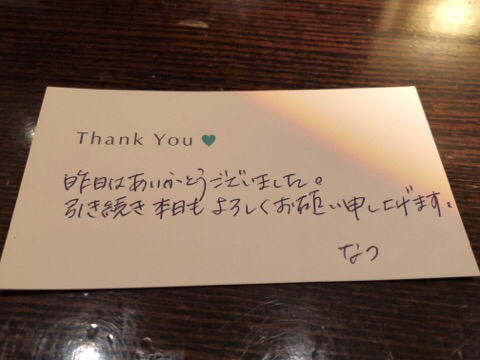 Thank You
昨日はありがとうございました。
引き続き本日もよろしくお願い申し上げます。
なつ